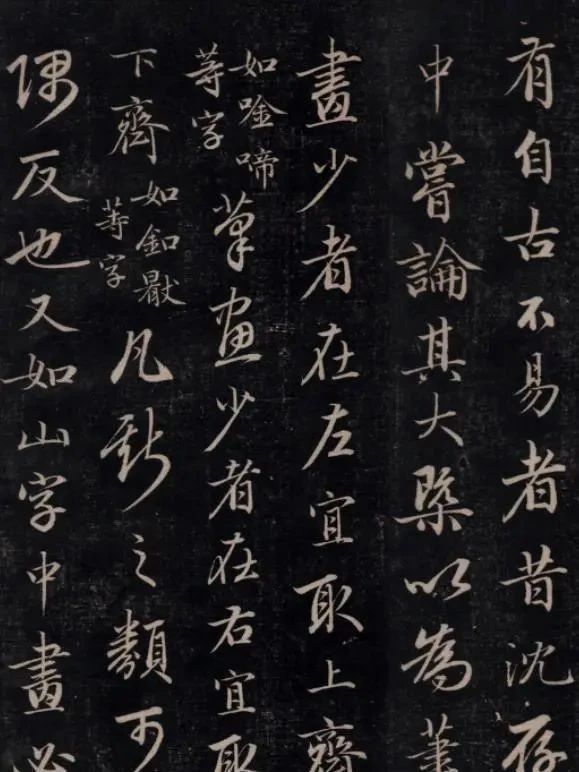 有自古不易者昔沈存
中嘗論其大槩以為筆
畫少者在左宜取上齊
如唫啼
等字
筆畫少者在右宜取
下齊
如釦
等字
凡斯之類可
隅反也又如山字中畫必